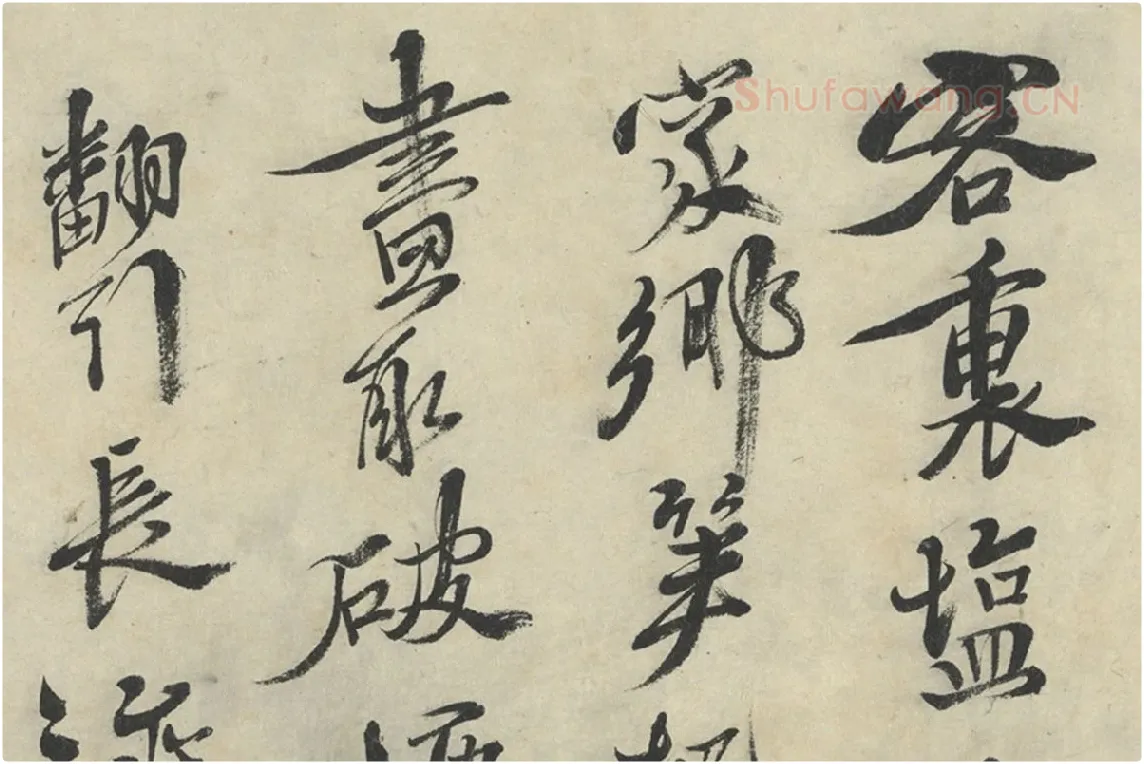 客裏塩
家鄉笋
畫取破
翻引長
Shufawang.CN